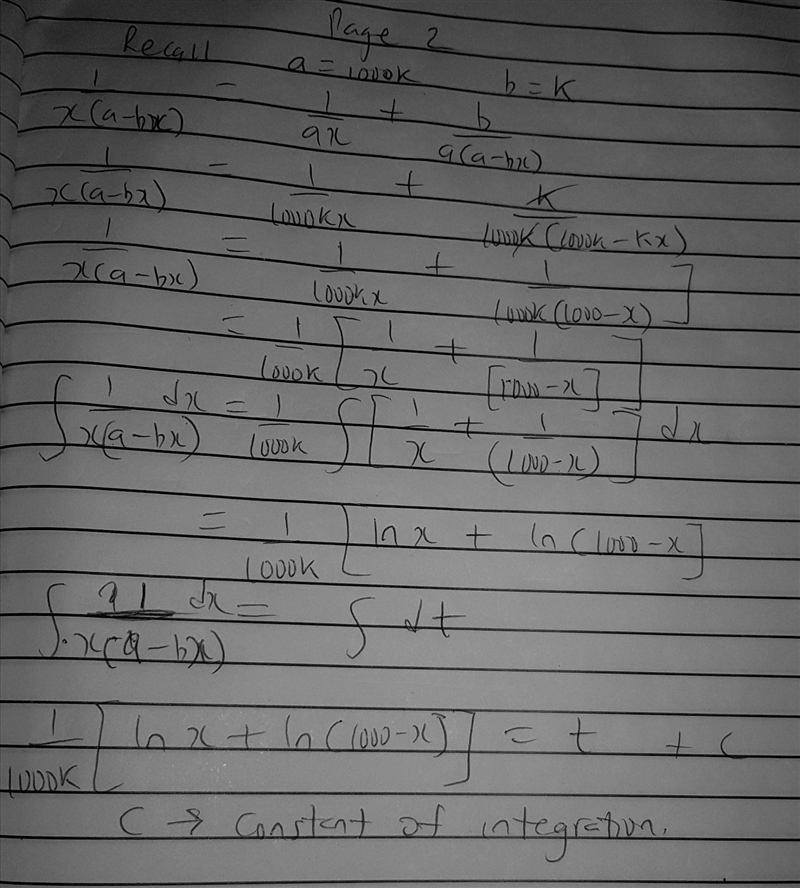 Page 2
Recall a = 1000K b = K
1/x(a-bx) = 1/ax + b/a(a-bx)
1/x(a-bx) = 1/1000Kx + K/1000K(1000K-Kx)
1/x(a-bx) = 1/1000Kx + 1/1000K(1000-x)]
= 1/1000K [1/x + 1/[1000-x]]
∫ 1/x(a-bx) dx = 1/1000K ∫ [1/x + 1/(1000-x)] dx
= 1/1000K [ln x + ln(1000-x]
∫ 1/x(a-bx) dx = ∫ dt
1/1000K [ln x + ln(1000-x)] = t + C
C → Constant of integration.